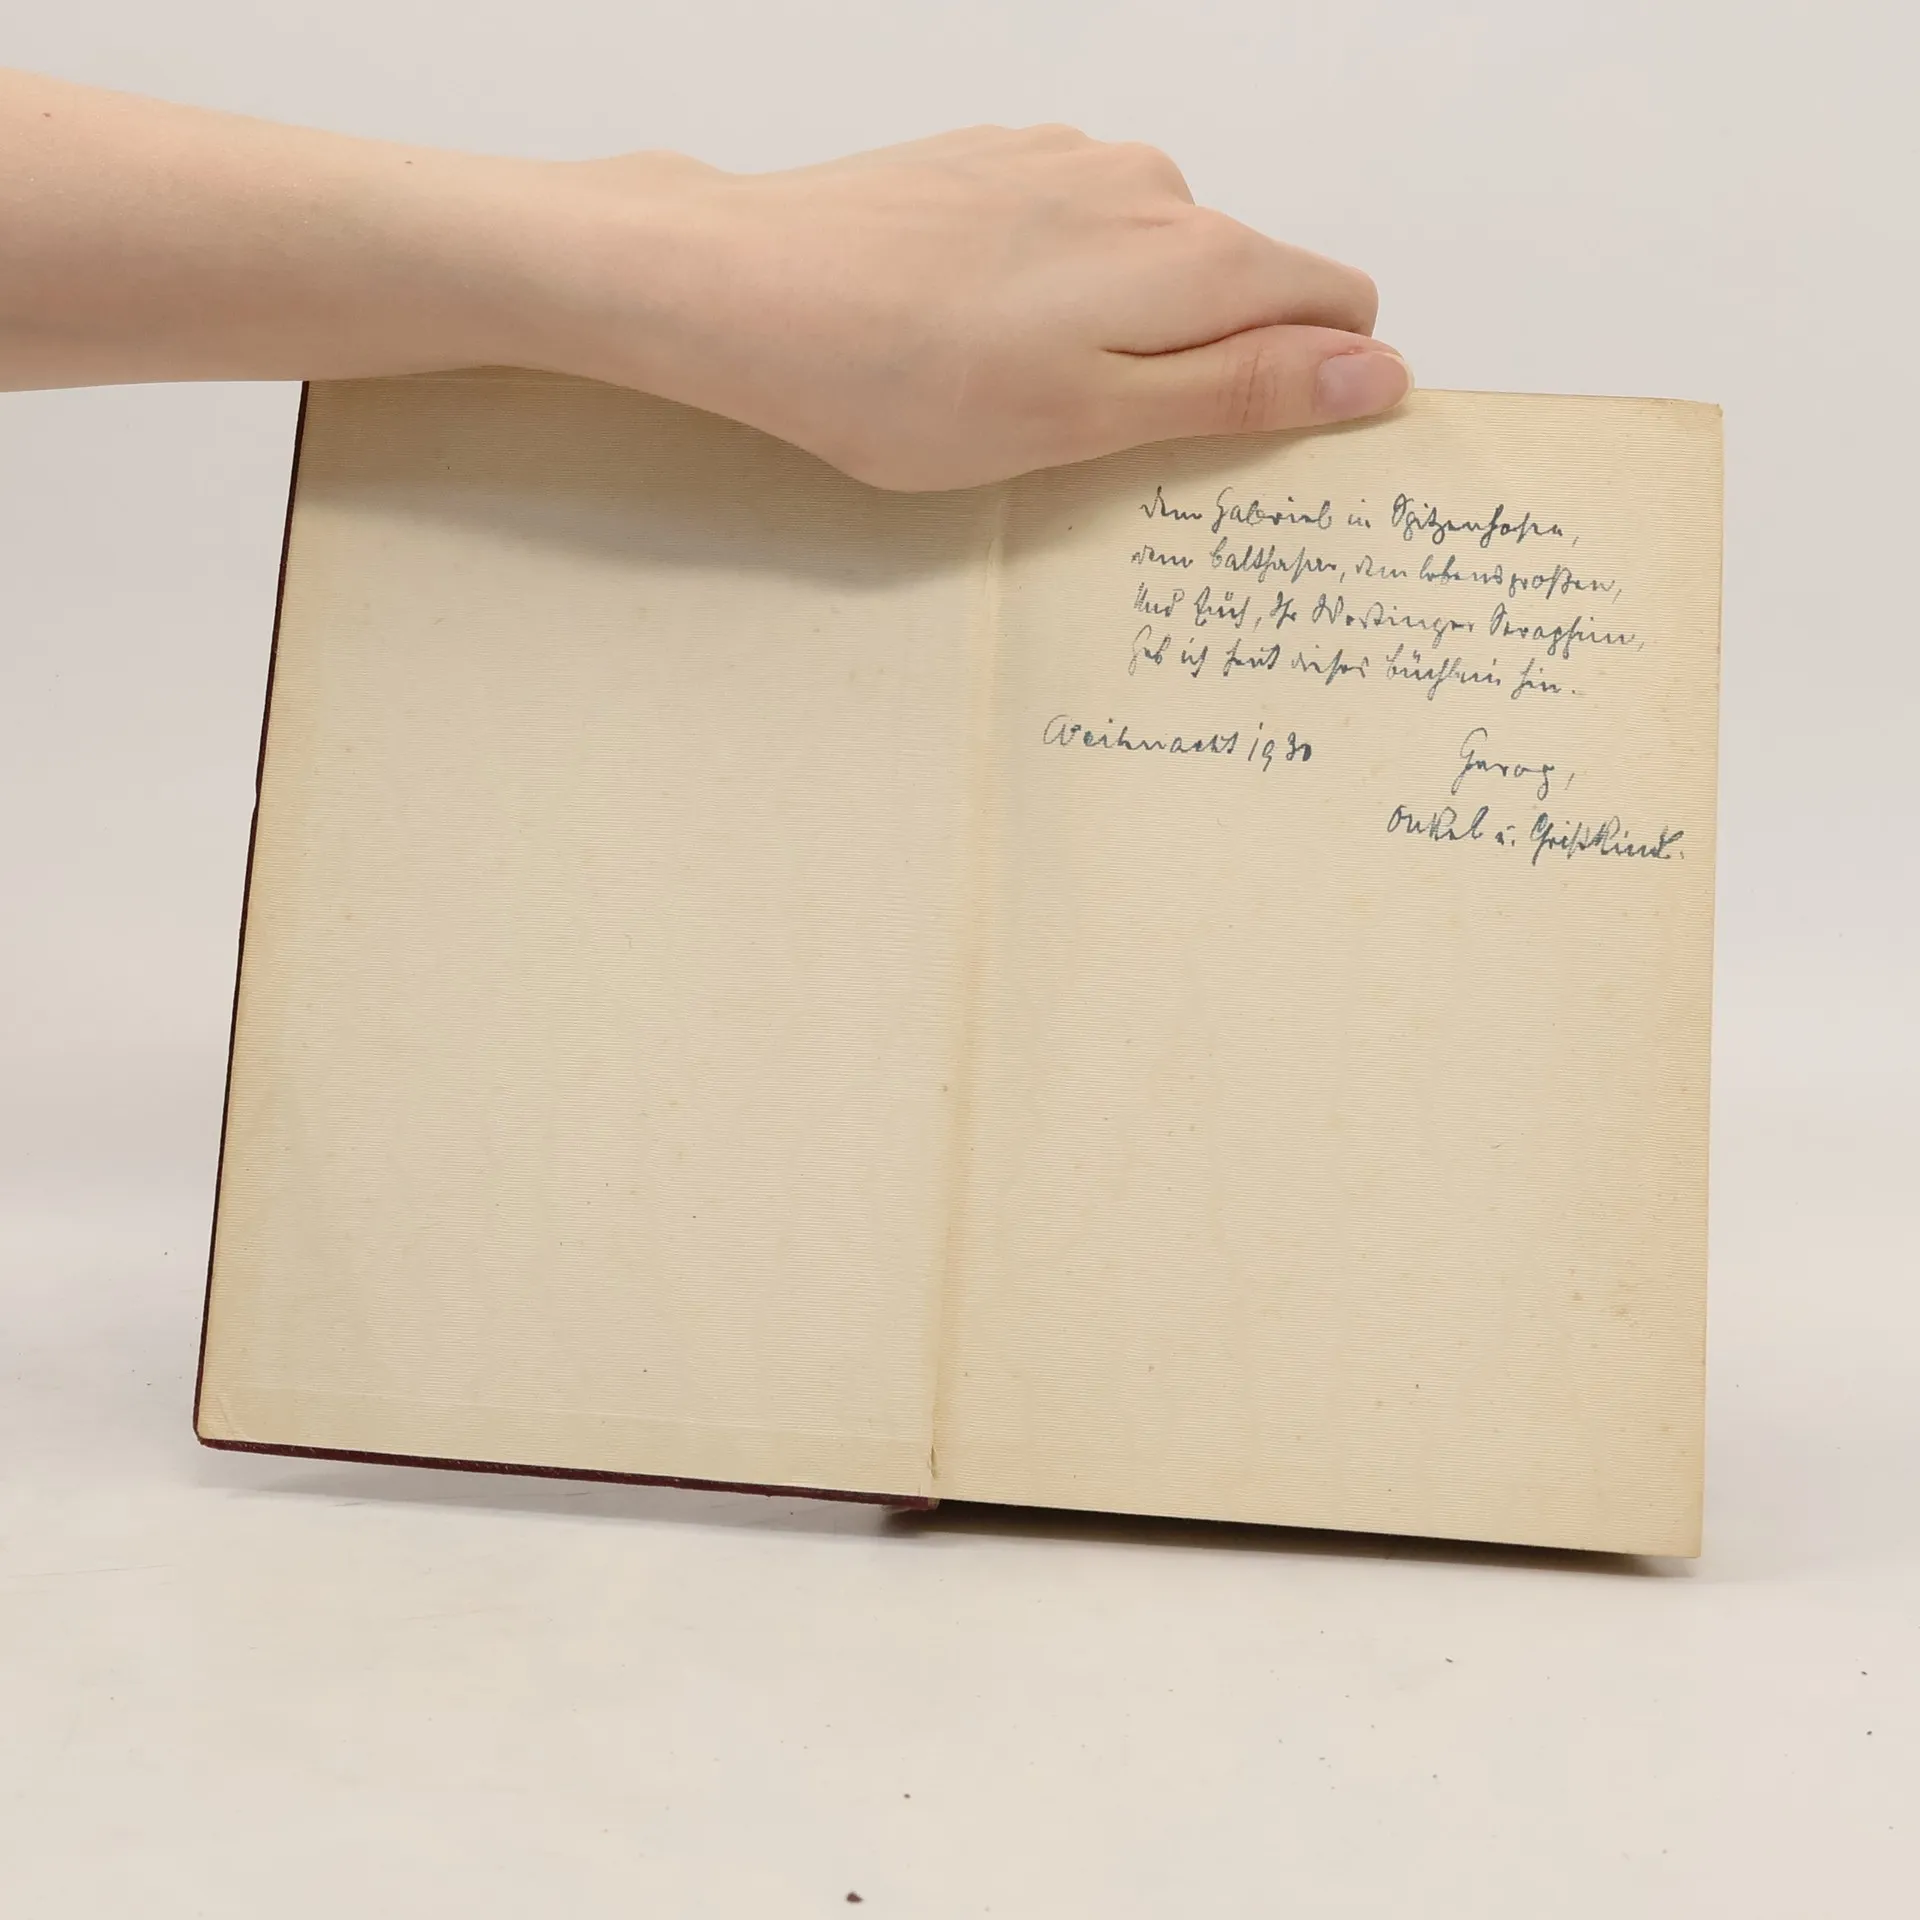 Dem Gabriel in Spitzenhosen,
dem Balthasar, dem lebensgroßen,
Und Euch, Ihr Seraphim,
Geb ich heut dieses Büchlein hin.
Weihnacht 1930
Onkel u. Christkind.